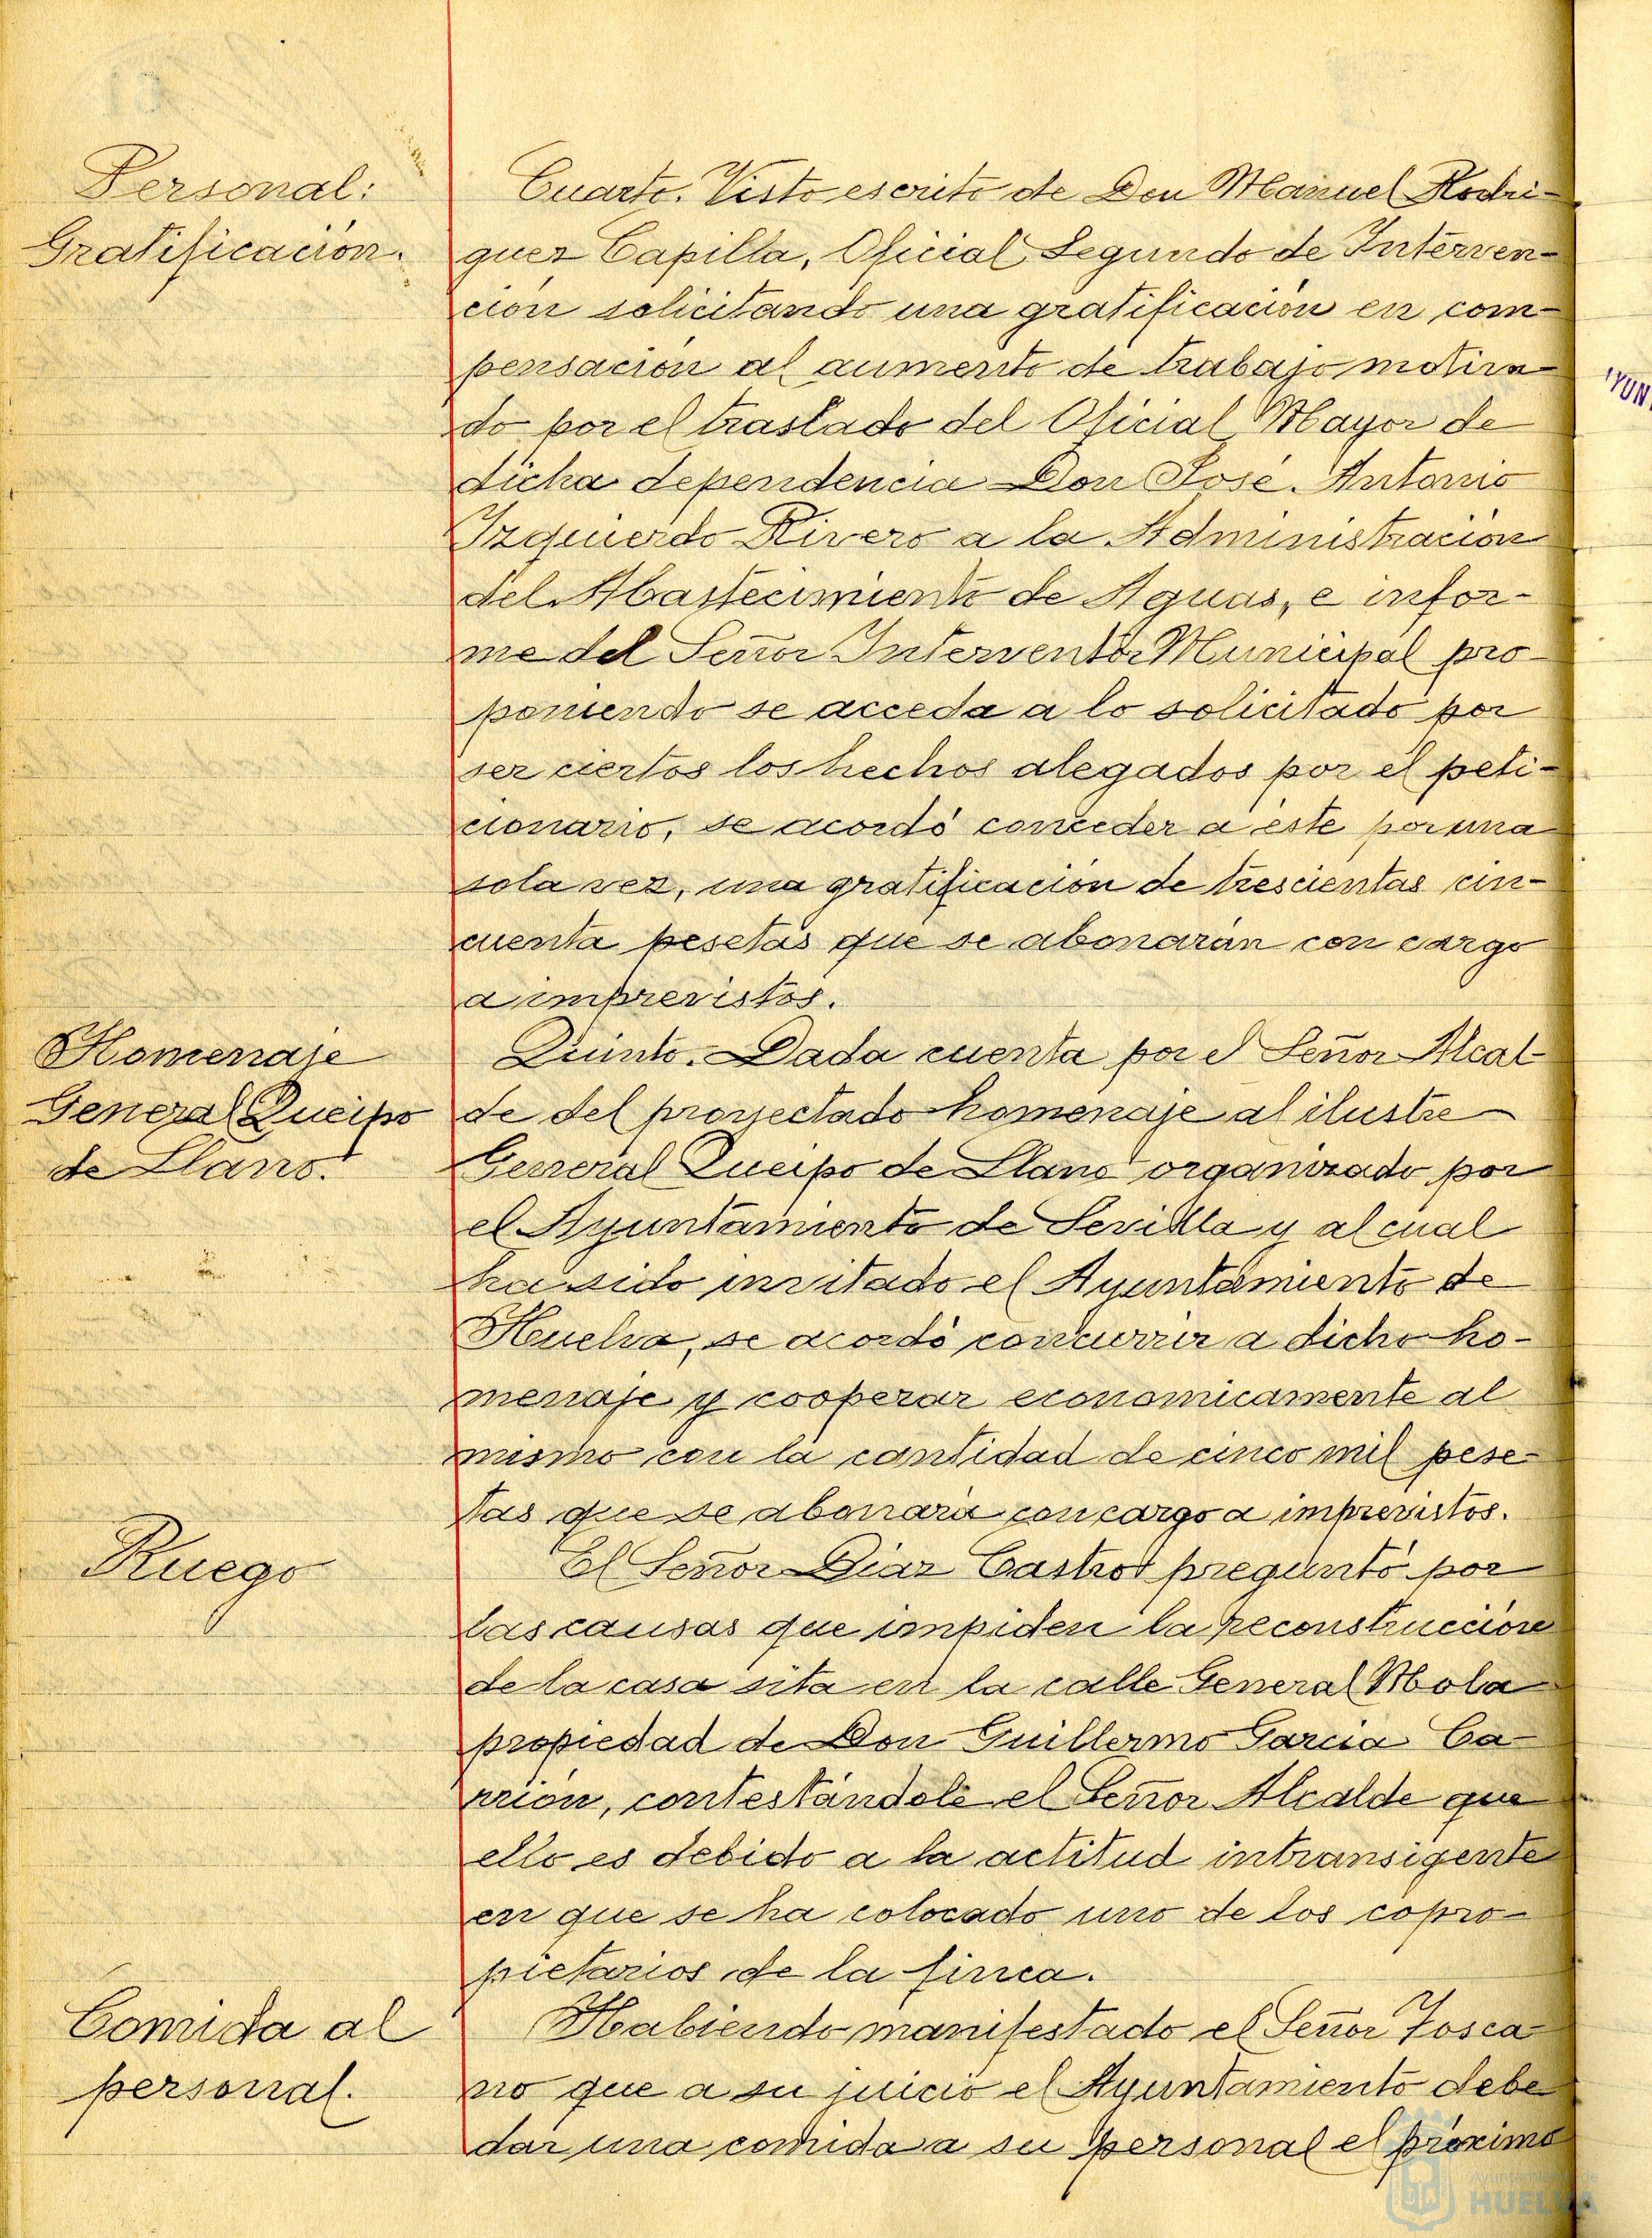 Personal:
Gratificación.
Cuarto. Visto escrito de Don Manuel Rodri-
guez Capilla, Oficial Segundo de Interven-
ción solicitando una gratificación en com-
pensación al aumento de trabajo motiva
do por el traslado del Oficial Mayor de
dicha dependencia Don José Antonio
Izquierdo Rivero a la Administración
del Abastecimiento de Aguas, e infor-
me del Señor Interventor Municipal pro-
poniendo se acceda a lo solicitado por
ser ciertos los hechos alegados por el peti-
cionario, se acordó conceder a éste por una
sola vez, una gratificación de trescientas cin-
cuenta pesetas que se abonarán con cargo
a imprevistos.
Homenaje
General Queipo
de Llano.
Quinto. Dada cuenta por el Señor Alcal-
de del proyectado homenaje al ilustre
General Queipo de Llano organizado por
el Ayuntamiento de Sevilla y al cual
ha sido invitado el Ayuntamiento de
Huelva, se acordó concurrir a dicho ho-
menaje y cooperar economicamente al
mismo con la cantidad de cinco mil pese-
tas que se abonará con cargo a imprevistos.
Ruego
El Señor Diaz Castro preguntó por
las causas que impiden la reconstrucción
de la casa sita en la calle General Mola
propiedad de Don Guillermo Garcia Ca-
rrión, contestándole el Señor Alcalde que
ello es debido a la actitud intransigente
en que se ha colocado uno de los copro-
pietarios de la finca.
Comida al
personal.
Habiendo manifestado el Señor Tosca-
no que a su juicio el Ayuntamiento debe
dar una comida a su personal el próximo
YUN
Ayuntamiento de
HUELVA